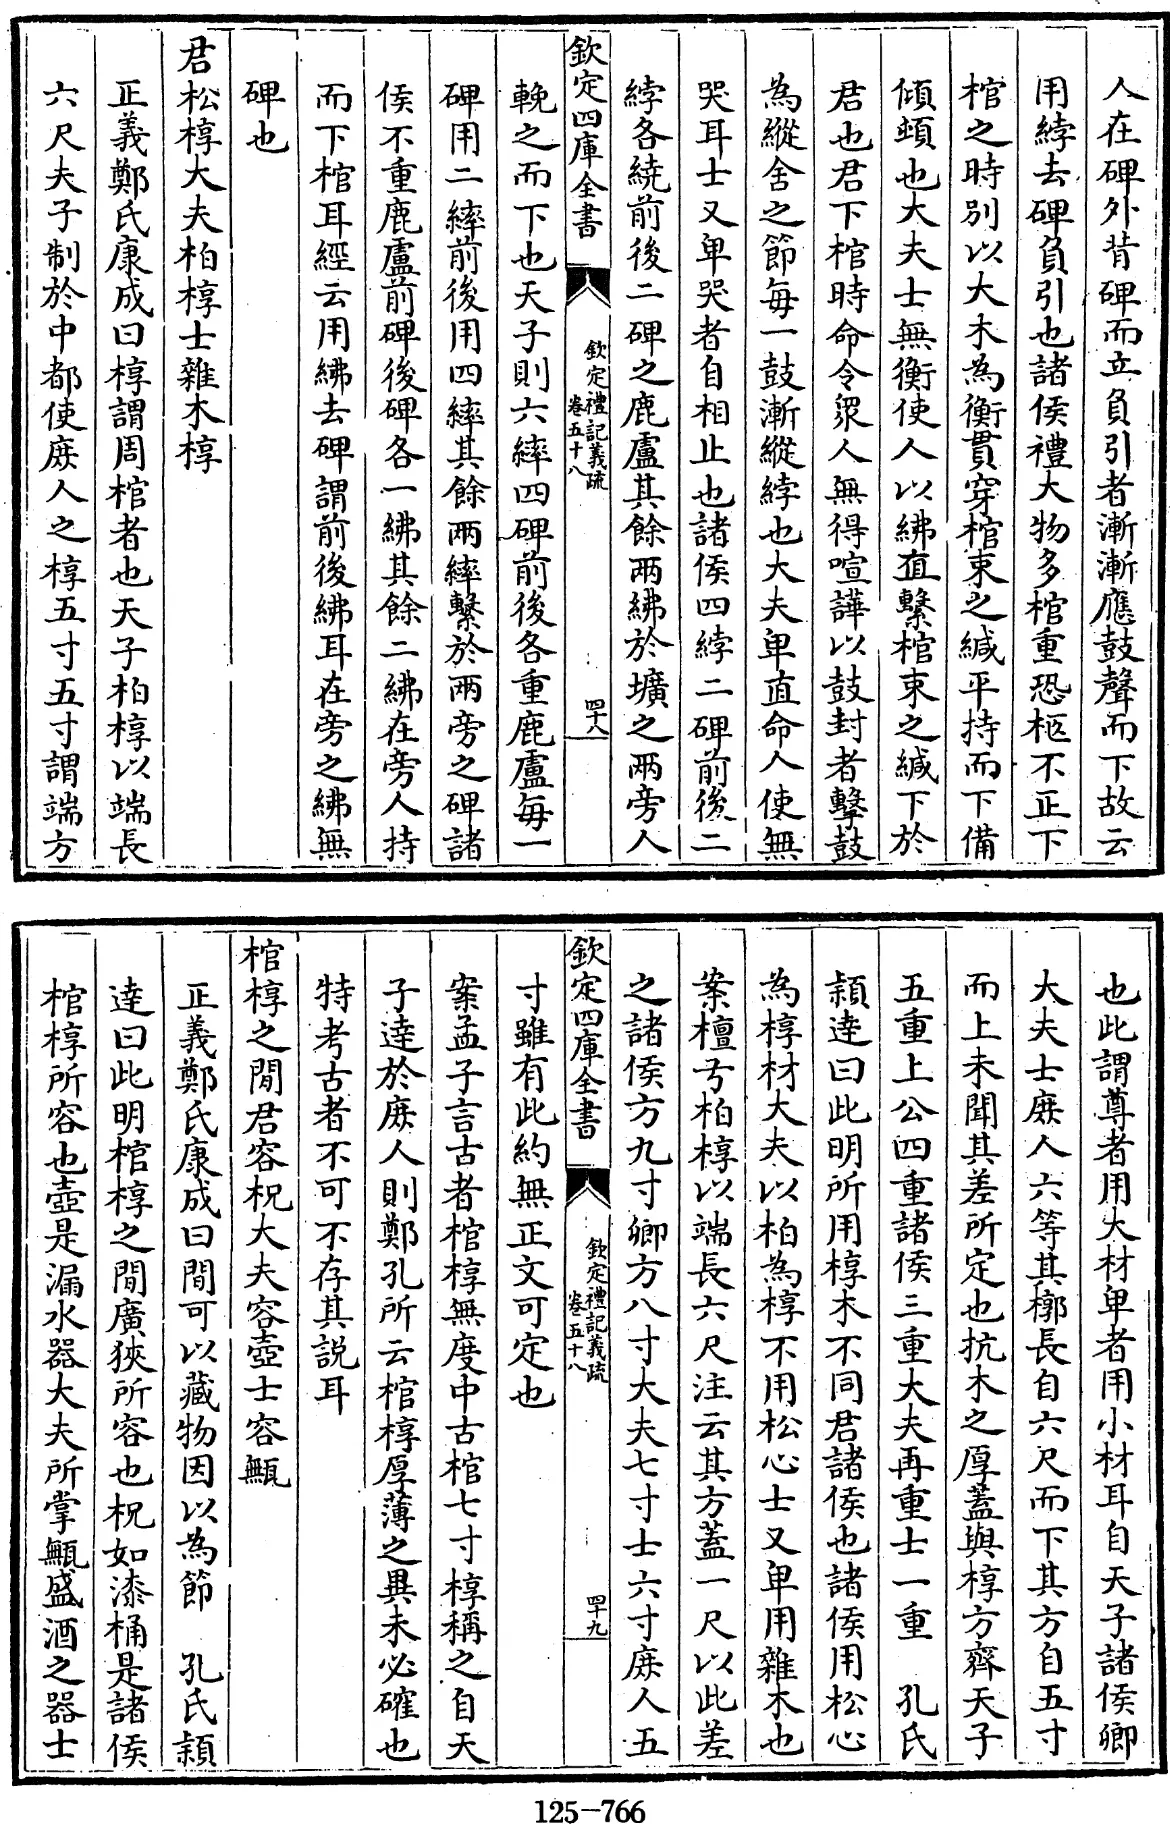 人在碑外背碑而立負引者漸漸應鼓聲而下故云
用綍去碑負引也諸侯禮大物多棺重恐柩不正下
棺之時別以大木為衡貫穿棺束之緘平持而下備
傾頓也大夫士無衡使人以紼直繫棺束之緘下於
君也君下棺時命令衆人無得喧譁以鼓封者擊鼓
為縱舍之節每一鼓漸縱綍也大夫卑直命人使無
哭耳士又卑哭者自相止也諸侯四綍二碑前後二
綍各繞前後二碑之鹿盧其餘兩紼於壙之兩旁人
欽定四庫全書
欽定禮記義疏
卷五十八
四十八
輓之而下也天子則六繂四碑前後各重鹿盧每一
碑用二繂前後用四繂其餘兩繂繫於兩旁之碑諸
侯不重鹿盧前碑後碑各一紼其餘二紼在旁人持
而下棺耳經云用紼去碑謂前後紼耳在旁之紼無
碑也
君松椁大夫柏椁士雜木椁
正義鄭氏康成曰椁謂周棺者也天子柏椁以端長
六尺夫子制於中都使庶人之椁五寸五寸謂端方
也此謂尊者用大材卑者用小材耳自天子諸侯卿
大夫士庶人六等其槨長自六尺而下其方自五寸
而上未聞其差所定也抗木之厚蓋與椁方齊天子
五重上公四重諸侯三重大夫再重士一重　孔氏
穎達曰此明所用椁木不同君諸侯也諸侯用松心
為椁材大夫以柏為椁不用松心士又卑用雜木也
案檀弓柏椁以端長六尺注云其方蓋一尺以此差
之諸侯方九寸卿方八寸大夫七寸士六寸庶人五
欽定四庫全書
欽定禮記義疏
卷五十八
四十九
寸雖有此約無正文可定也
案孟子言古者棺椁無度中古棺七寸椁稱之自天
子達於庶人則鄭孔所云棺椁厚薄之異未必確也
特考古者不可不存其説耳
棺椁之間君容柷大夫容壺士容甒
正義鄭氏康成曰間可以藏物因以為節　孔氏穎
達曰此明棺椁之間廣狹所容也柷如漆桶是諸侯
棺椁所容也壺是漏水器大夫所掌甒盛酒之器士
125-766